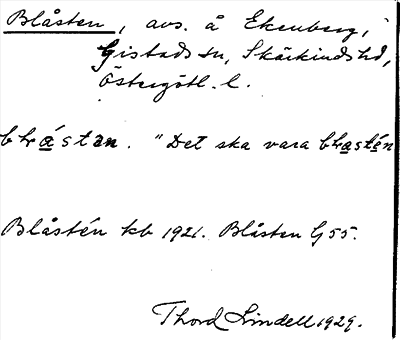 Blåsten, avs. å Ekenberg,
Gistads sn, Skärkinds hd,
Östergötl. l.
blråstan. "Det ska vara blrastén
Blåstén kb 1921. Blåsten G 55.
Thord Lindell 1929.